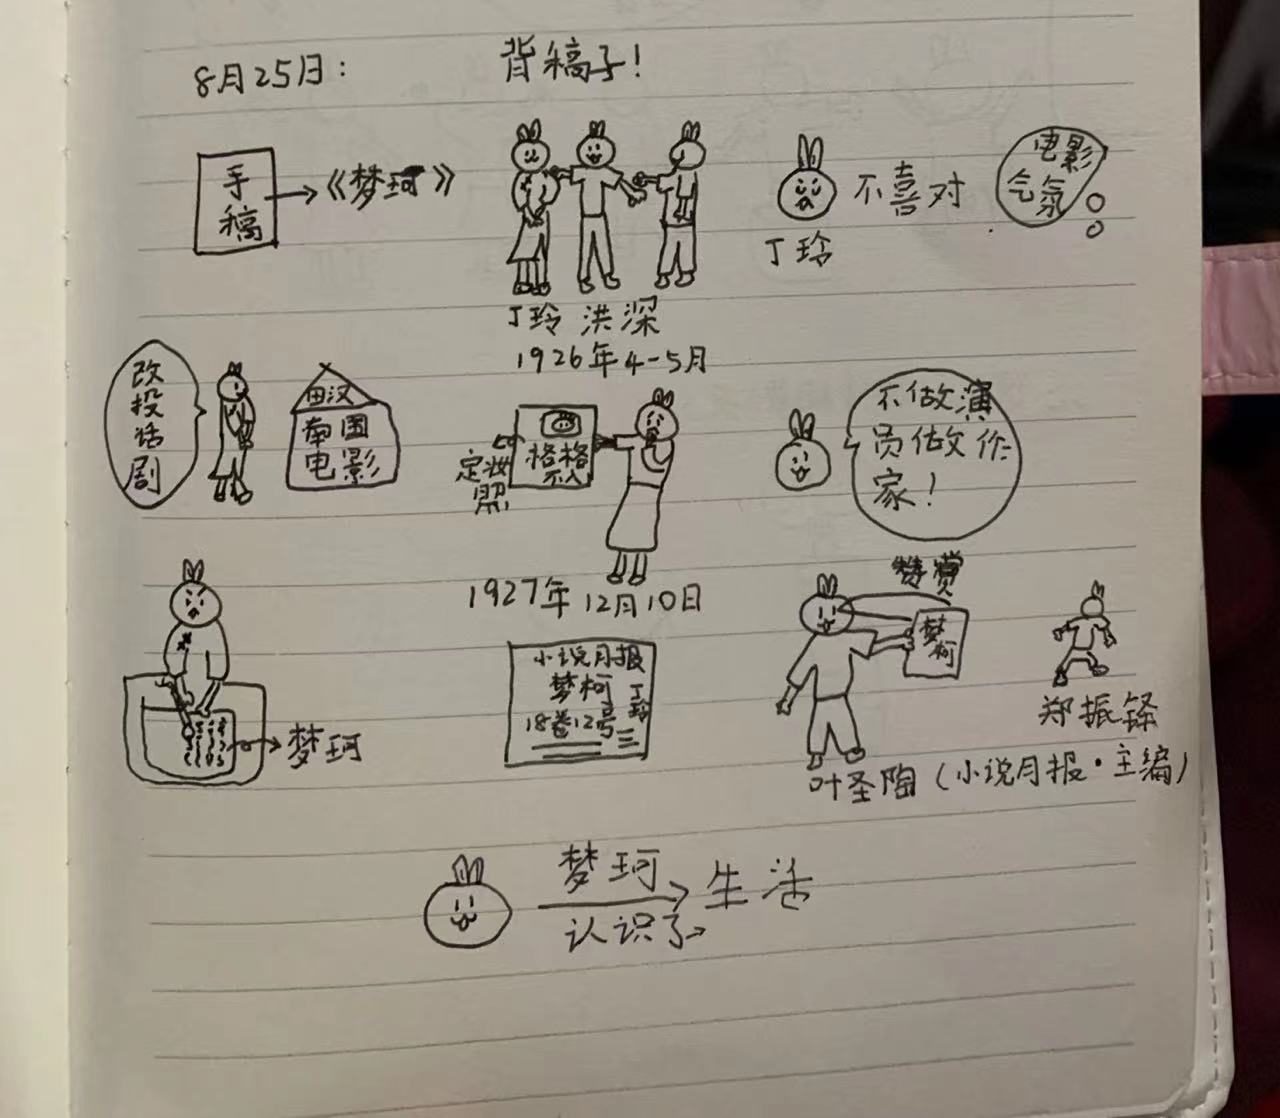 8月25日： 背稿子！
手稿
《梦珂》
丁玲 洪深
1926年4-5月
丁玲
不喜对
电影
气氛
改投话剧
田汉
南国
电影
定妆照
格格
1927年12月10日
不做演
员做作
家！
梦珂
小说月报
梦柯
丁玲
18卷12号
赞赏
梦柯
叶圣陶（小说月报·主编）
郑振铎
梦珂
认识了
生活